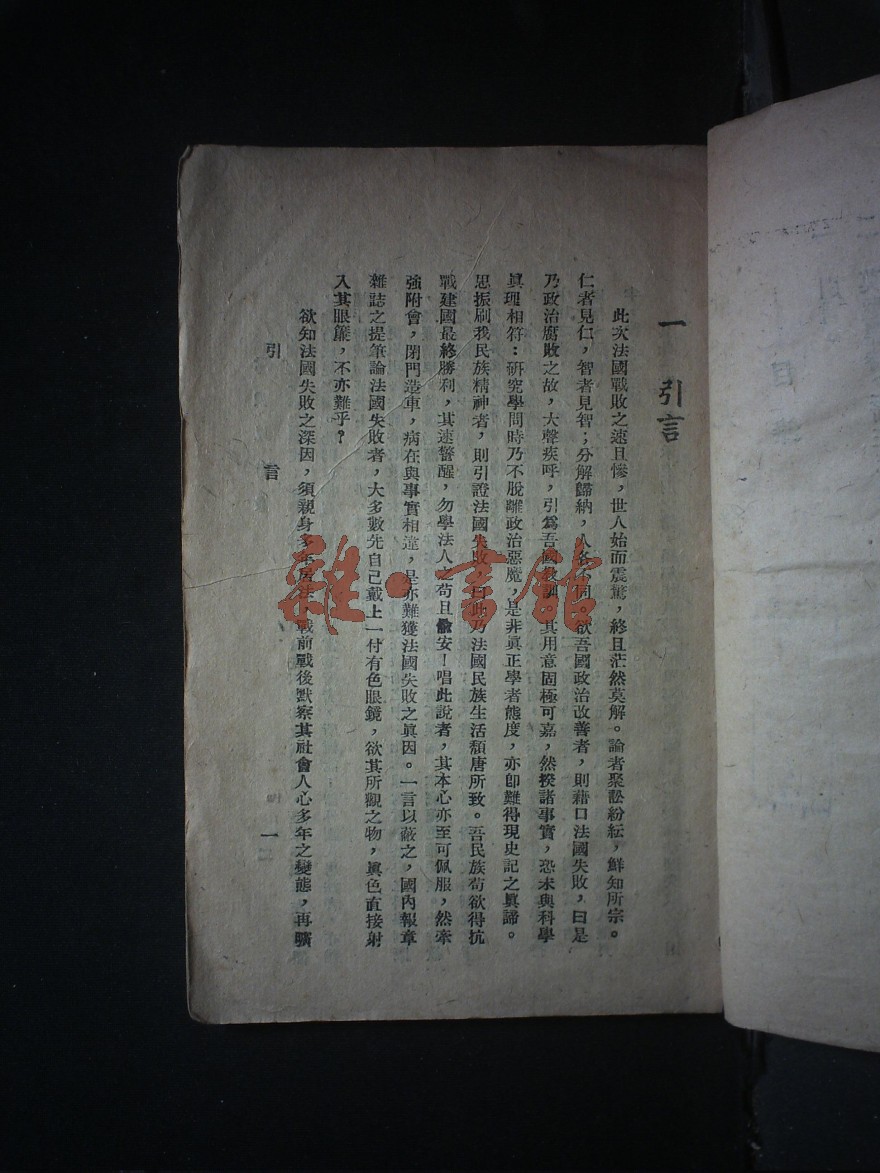 一 引言
此次法國戰敗之速且慘，世人始而震驚，終且茫然莫解。論者聚訟紛紜，鮮知所宗。
仁者見仁，智者見智；分解歸納，人各不同，欲吾國政治改善者，則藉口法國失敗，曰是
乃政治腐敗之故，大聲疾呼，引爲吾國教訓，其用意固極可嘉，然揆諸事實，恐未與科學
眞理相符：研究學問時乃不脫離政治惡魔，是非眞正學者態度，亦卽難得現史記之眞諦。
思振刷我民族精神者，則引證法國失敗，曰此乃法國民族生活頹唐所致。吾民族苟欲得抗
戰建國最終勝利，其速警醒，勿學法人之苟且偸安！唱此說者，其本心亦至可佩服，然牽
強附會，閉門造車，病在與事實相違，是亦難獲法國失敗之眞因。一言以蔽之，國內報章
雜誌之提筆論法國失敗者，大多數先自己戴上一付有色眼鏡，欲其所觀之物，眞色直接射
入其眼簾，不亦難乎？
欲知法國失敗之深因，須親身多年居法，戰前戰後默察其社會人心多年之變態，再曠
引 言 一
雜·書館